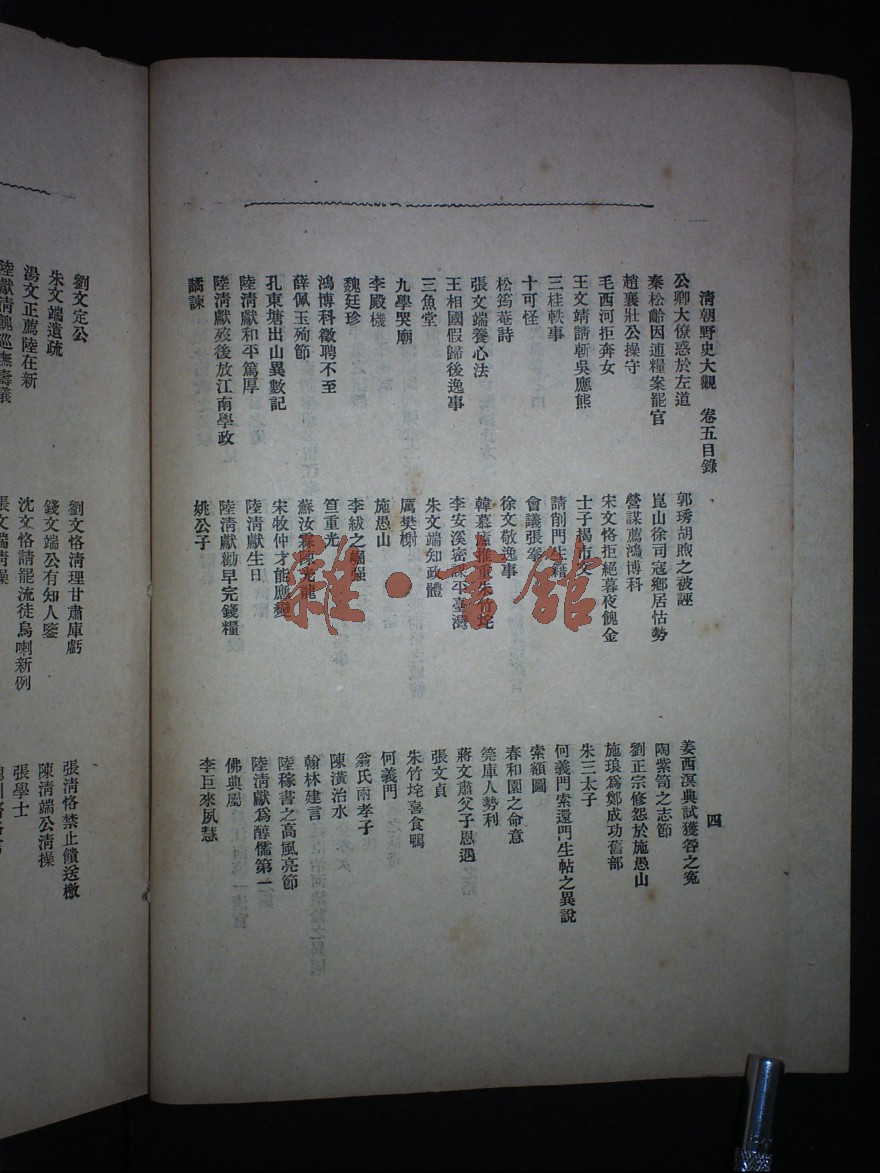 清朝野史大觀 卷五目錄 四
公卿大僚惑於左道
郭琇胡煦之被誣
姜西溟典試獲咎之寃
秦松齡因連糧案罷官
崑山徐司寇鄉居怙勢
陶紫笥之志節
趙襄壯公操守
營謀薦鴻博科
劉正宗修怨於施愚山
毛西河拒奔女
宋文恪拒絕暮夜餽金
施琅爲鄭成功舊部
王文靖請斬吳應熊
士子揭市文
朱三太子
三桂軼事
請削門生籍
何義門索還門生帖之異說
十可怪
會議張奉
索額圖
松筠菴詩
徐文敬逸事
春和園之命意
張文端養心法
韓慕廬推重朱竹垞
筦庫人勢利
王相國假歸後逸事
李安溪密謀平臺灣
蔣文肅父子恩遇
三魚堂
朱文端知政體
張文貞
九學哭廟
厲樊榭
朱竹垞喜食鴨
李殿機
施愚山
何義門
魏廷珍
李紱之崛强
翁氏兩孝子
鴻博科徵聘不至
笪重光
陳潢治水
薛佩玉殉節
蘇汝霖陳光龍
翰林建言
孔東塘出山異數記
宋牧仲才能應變
陸稼書之高風亮節
陸淸獻和平篤厚
陸淸獻生日
陸淸獻爲醇儒第一
陸淸獻歿後放江南學政
陸淸獻勸早完錢糧
佛典屬
譎諫
姚公子
李巨來夙慧
劉文定公
劉文恪淸理甘肅庫虧
張淸恪禁止饋送檄
朱文端遺疏
錢文端公有知人鑒
陳淸端公淸操
湯文正薦陸在新
沈文恪請罷流徒烏喇新例
張學士
陸獻淸魏巡撫壽議
張文端淸操